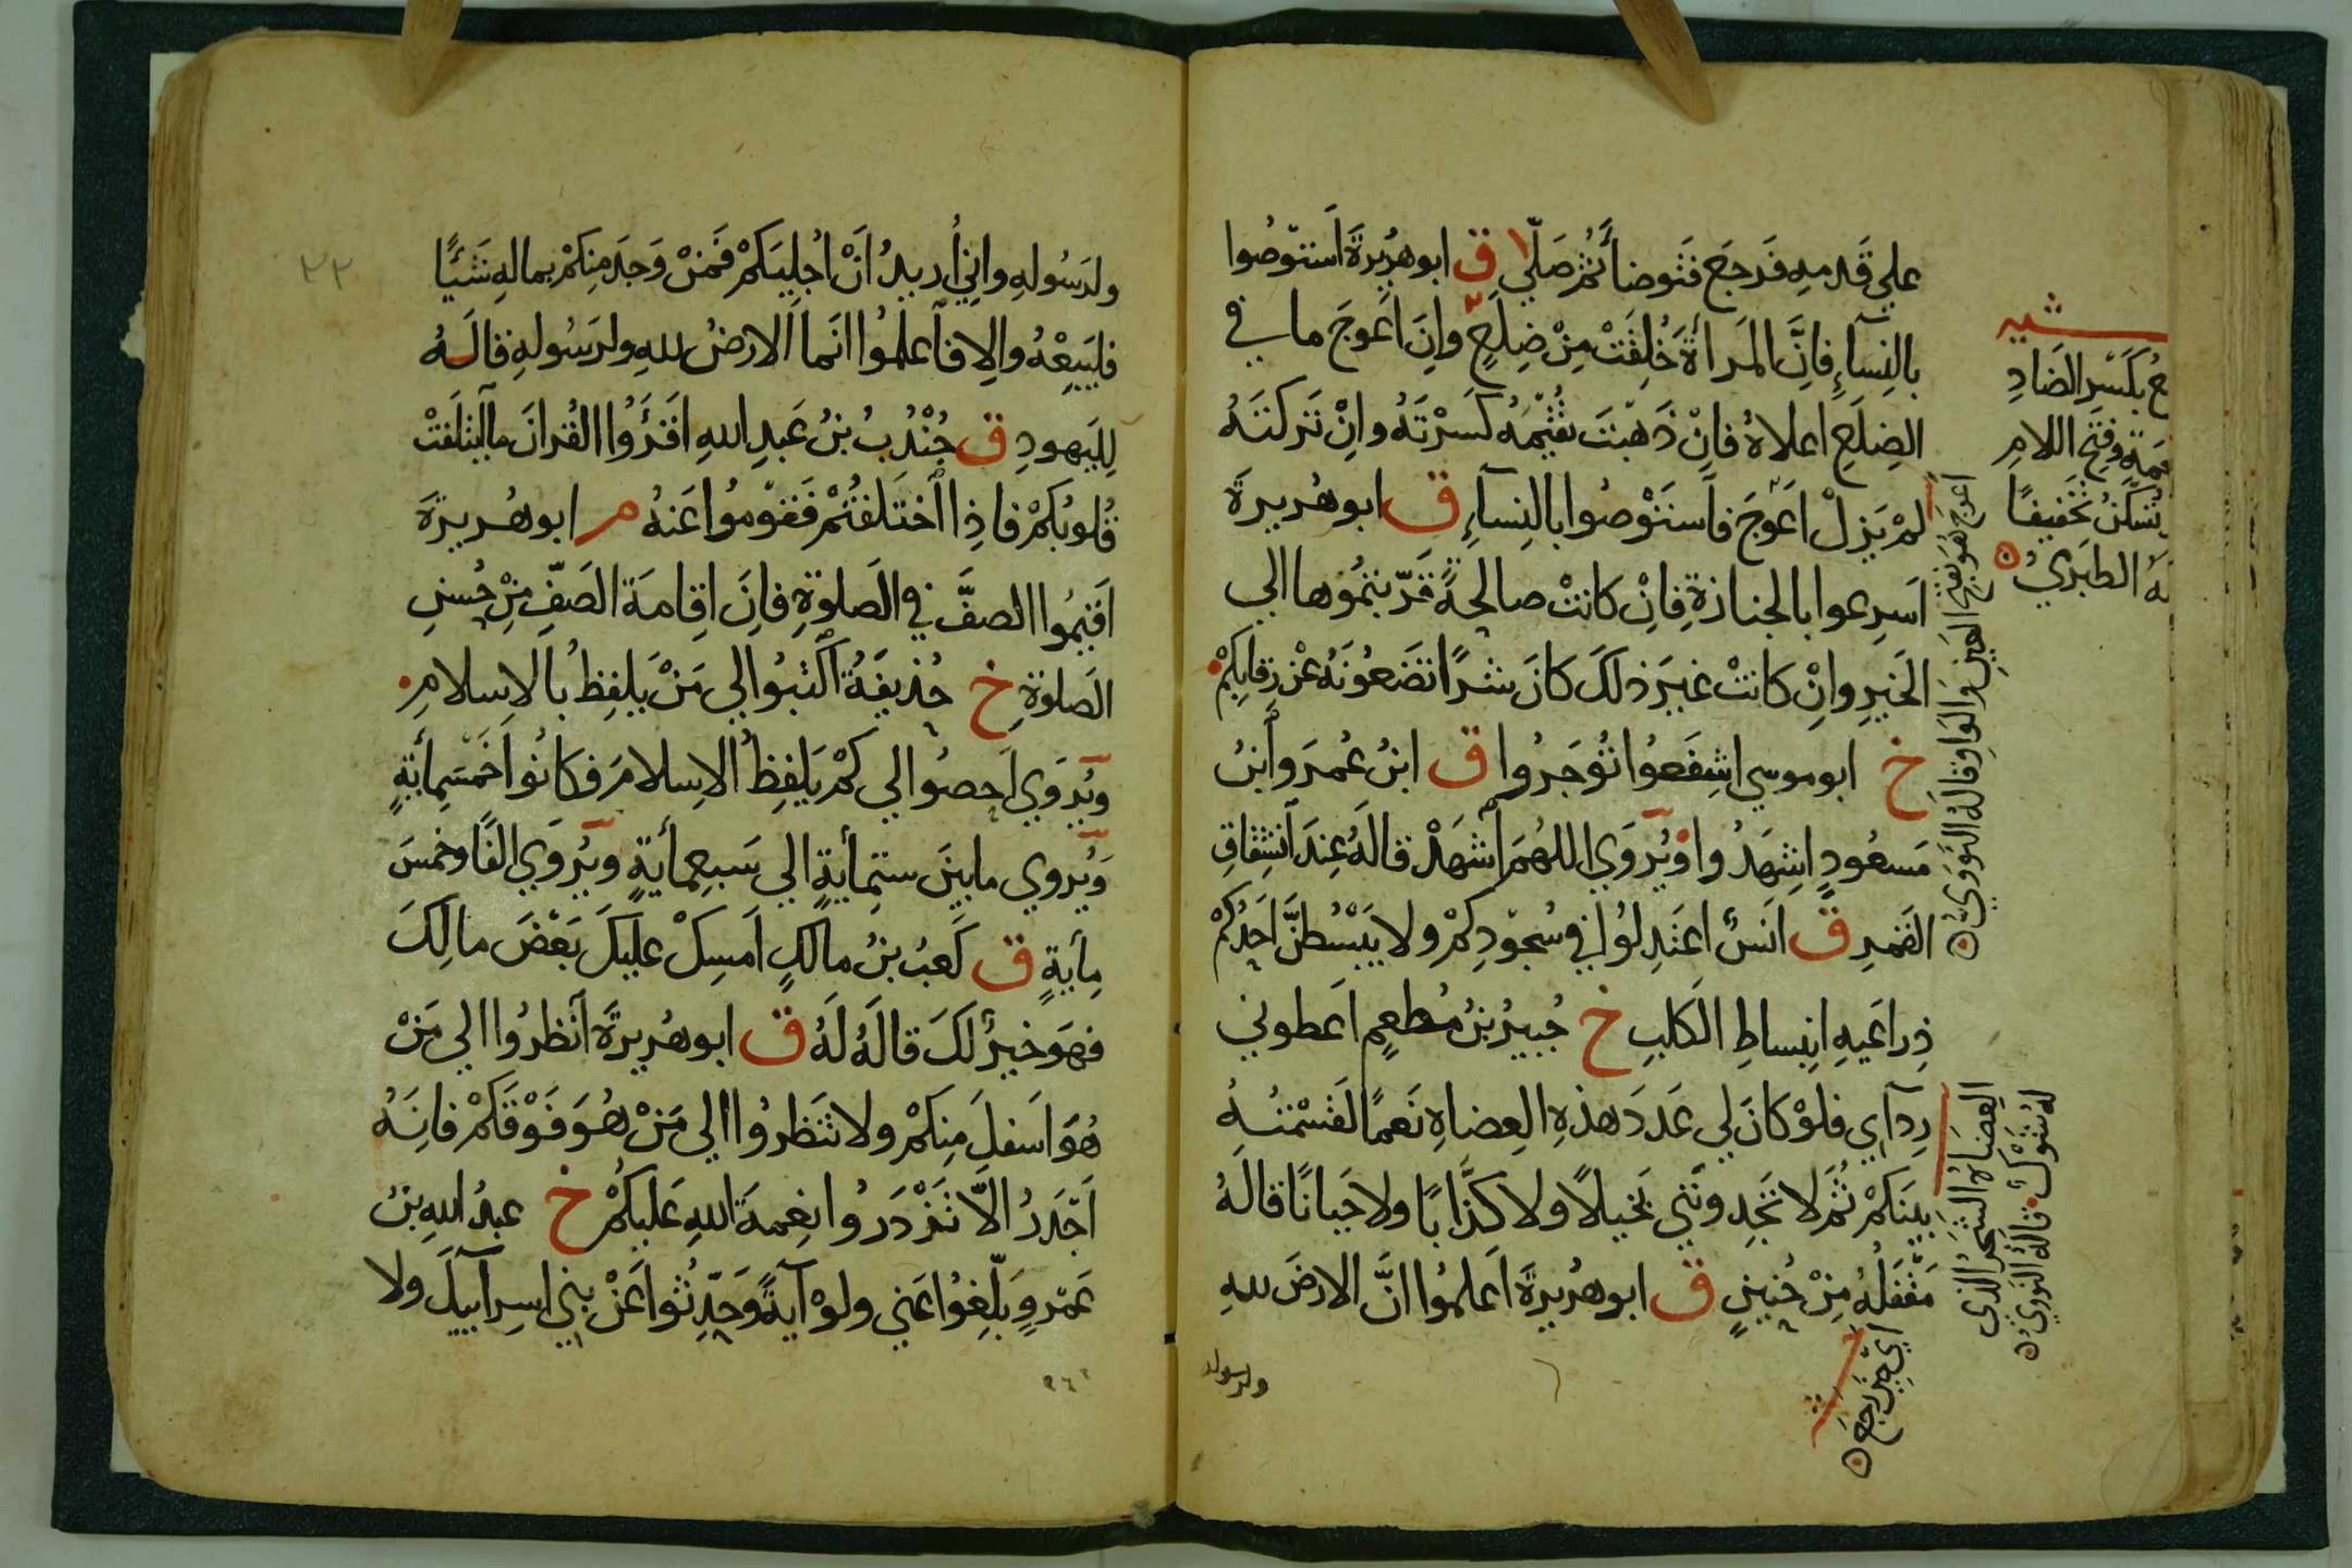 علي قدمه فرجع فتوضأ ثم صلّى ق ابو هريرة استوصوا
بالنسآء فانّ المرأة خُلِقَتْ مِنْ ضِلَعٍ وانّ اعوجَ ما في
الضلع اعلاهُ فانْ ذهبتَ تُقيمُهُ كسرْتَهُ وانْ تركتَهُ
لمْ يَزلْ اعوجَ فاستوْصُوا بالنسآءِ ق ابو هريرة
اَسرِعوا بالجنازةِ فانْ كانتْ صالحةً قدّمتموها الي
الخيرِ وانْ كانتْ غيرَ ذلكَ كانَ شرًا تضعُونَهُ عنْ رقابكمْ
خ ابو موسي اشفعُوا تُؤجَرُوا ق ابنُ عُمرَ وابنُ
مسعُودٍ اِشهَدُوا ويُروَي اللهُمَ اشهَدْ قالَهُ عِندَ اَنشِقاقِ
القمرِ ق انَسٌ اعتَدِلُوا في سُجودِكمْ ولا يَبْسُطنَّ احَدُكمْ
ذِراعَيهِ انبِساطِ الكلبِ خ جُبيرُ بنُ مُطعِمٍ اَعطوني
رِدآيي فلوْ كانَ لي عَدَدَ هذهِ العِضاهِ نَعمًا لقسَمْتُهُ
بينَكمْ ثُمَ لا تَجِدونَني بَخيلاً ولا كذَّابًا ولا جَبانًا قالَهُ
مَقْفَلَهُ مِنْ حُنينٍ ق ابو هُريرةَ اَعلمُوا انَّ الارضَ للهِ
ولرسوله
شيه
ع بكسر الضادِ
جمةِ وفتح اللامِ
تسكنُ تخفيفًا
لهُ الطبَريُ
اعوج هو بفتح العين والواو قالهُ النَّوَوي
العِضاهُ الشجرُ الذي
لهُ شَوْكٌ قالهُ النووي
اي حين رجع
ولرسُولهِ وانِي اُريدُ انْ اُجلِيَكمْ فَمنْ وَجدَ مِنكمْ بمالهِ شيئًا
فليَبِعْهُ والا فاَعلمُوا انما الارضُ للهِ ولرَسُولهِ قالَهُ
لليَهودِ ق جُنْدُبُ بنُ عَبدِ اللهِ اقرَؤُا القُرانَ ما ائتلَفَتْ
قُلوبُكمْ فاذِا اَختَلفتُمْ فَقومُوا عَنهُ م ابو هُريرةَ
اَقيمُوا الصفَّ في الصَلوةِ فانَ اِقامةَ الصَفّ مِنْ حُسنِ
الصَلوة خ حُذيفَةُ اكتبُوا لي مَنْ يلفِظُ بالاِسلامِ
ويُروَي اَحصُوا لي كمْ يَلفِظُ الاِسلامَ فكانُوا خَمسَمِأيَةٍ
ويُروي ما بينَ ستمأيةٍ الي سَبعِمأيةٍ ويُروَي الفًا وخمسَ
مِأيةٍ ق كَعبُ بنُ مالكٍ اَمسِكْ عليكَ بَعْضَ مالِكَ
فهوَ خيرٌ لكَ قالَهُ لَهُ ق ابو هُريرةَ اَنظرُوا الي مَنْ
هُوَ اَسفلَ مِنكمْ ولا تَنظرُوا الي مَنْ هُوَ فَوْقكمْ فانَهُ
اَجدَرُ الاّ تَزْدَرُوا نِعمةَ اللهِ عَليكُمْ خ عبدُ اللهِ بنُ
عَمْروٍ بَلّغُوا عَني ولوْ آيةً وحَدِّثُوا عَنْ بني اسرآييلَ ولا
٢٢